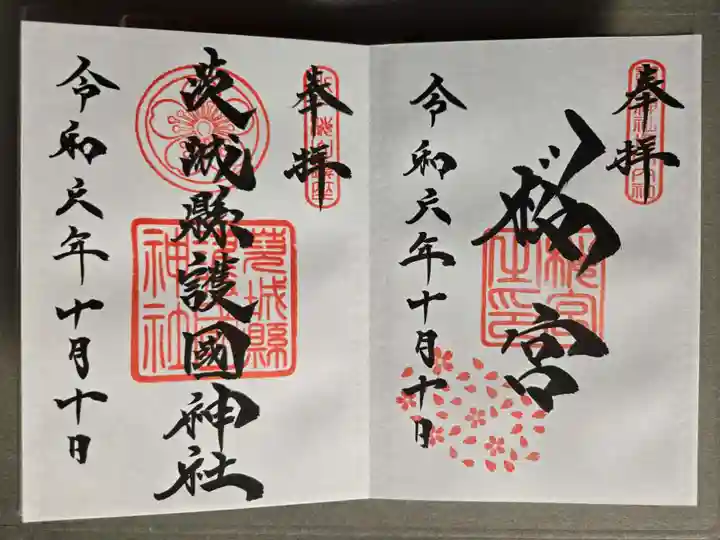 奉拝
桜宮
令和六年十月十日
奉拝
茨城縣護國神社
茨城縣護國神社
令和六年十月十日